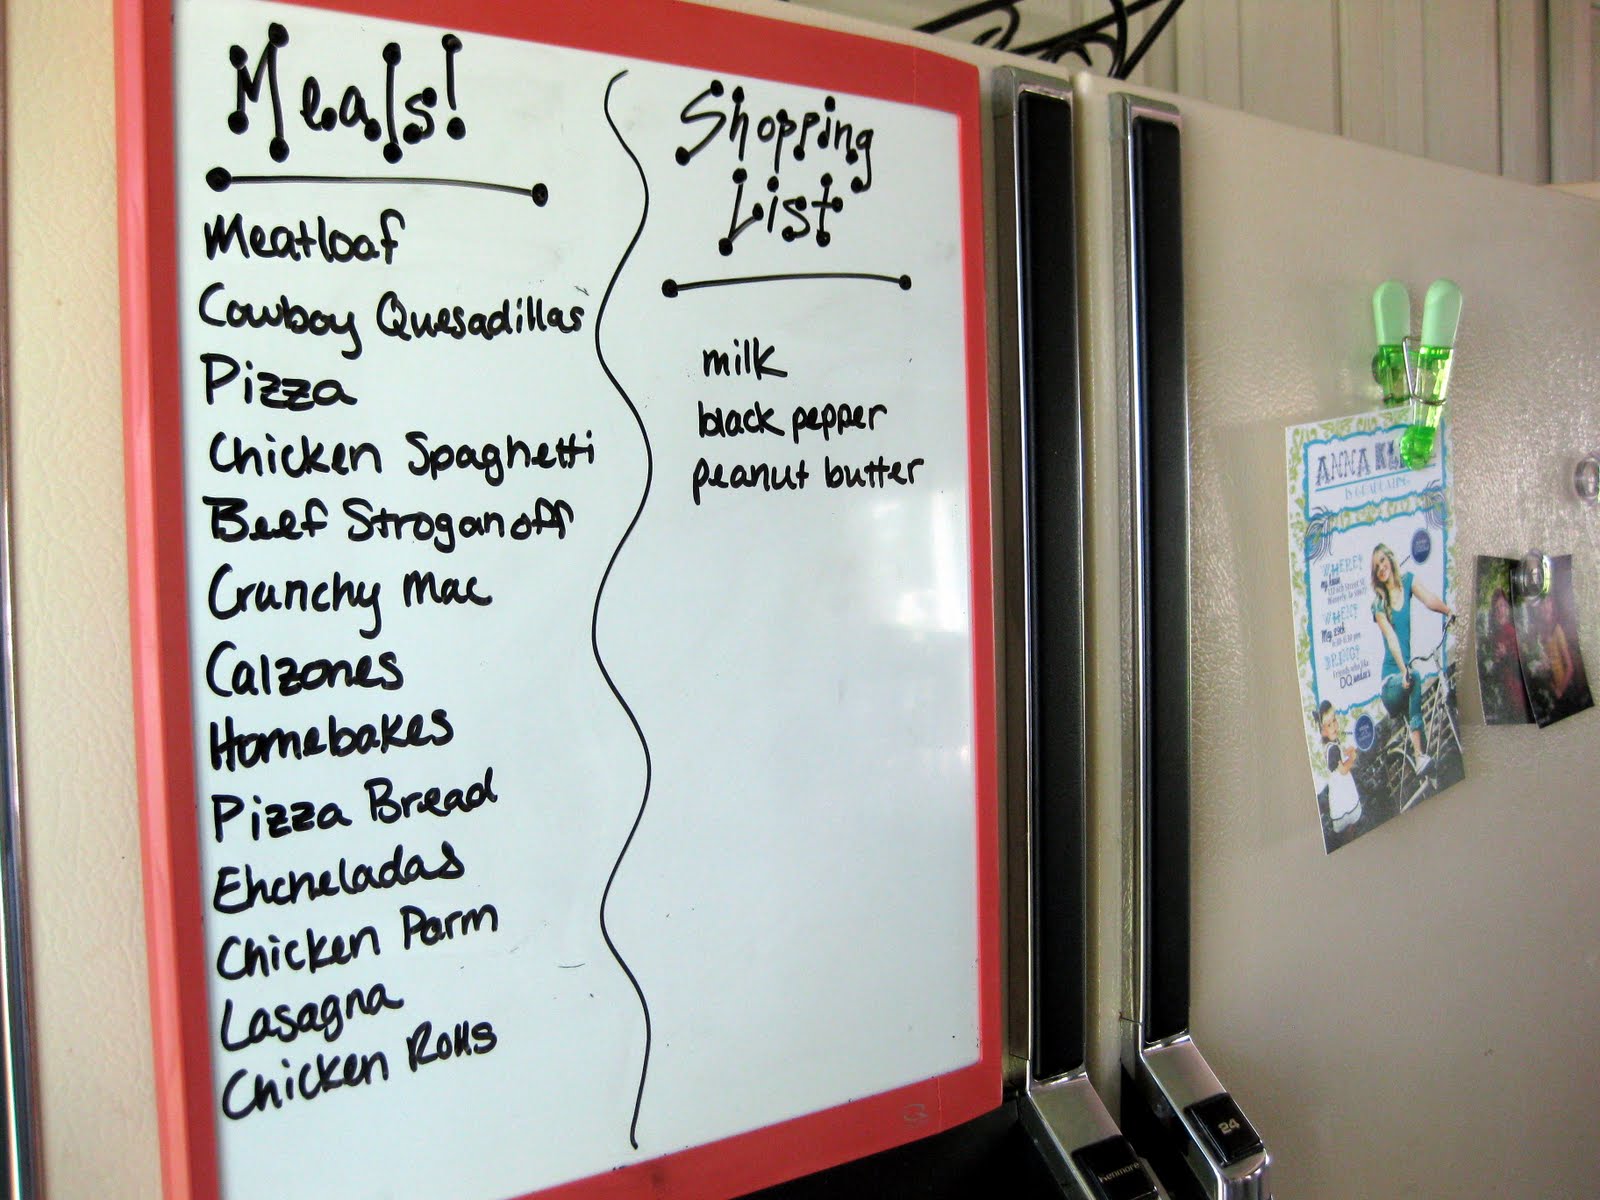 Meals!
Meatloaf
Cowboy Quesadillas
Pizza
Chicken Spaghetti
Beef Stroganoff
Crunchy Mac
Calzones
Homebakes
Pizza Bread
Ehcneladas
Chicken Parm
Lasagna
Chicken Rolls
Shopping
List
milk
black pepper
peanut butter
ANNA
IS GRADUATING
WHERE?
my house
WHEN?
May 29th
BRING?
Friends who like
DQ
Kenmore
24